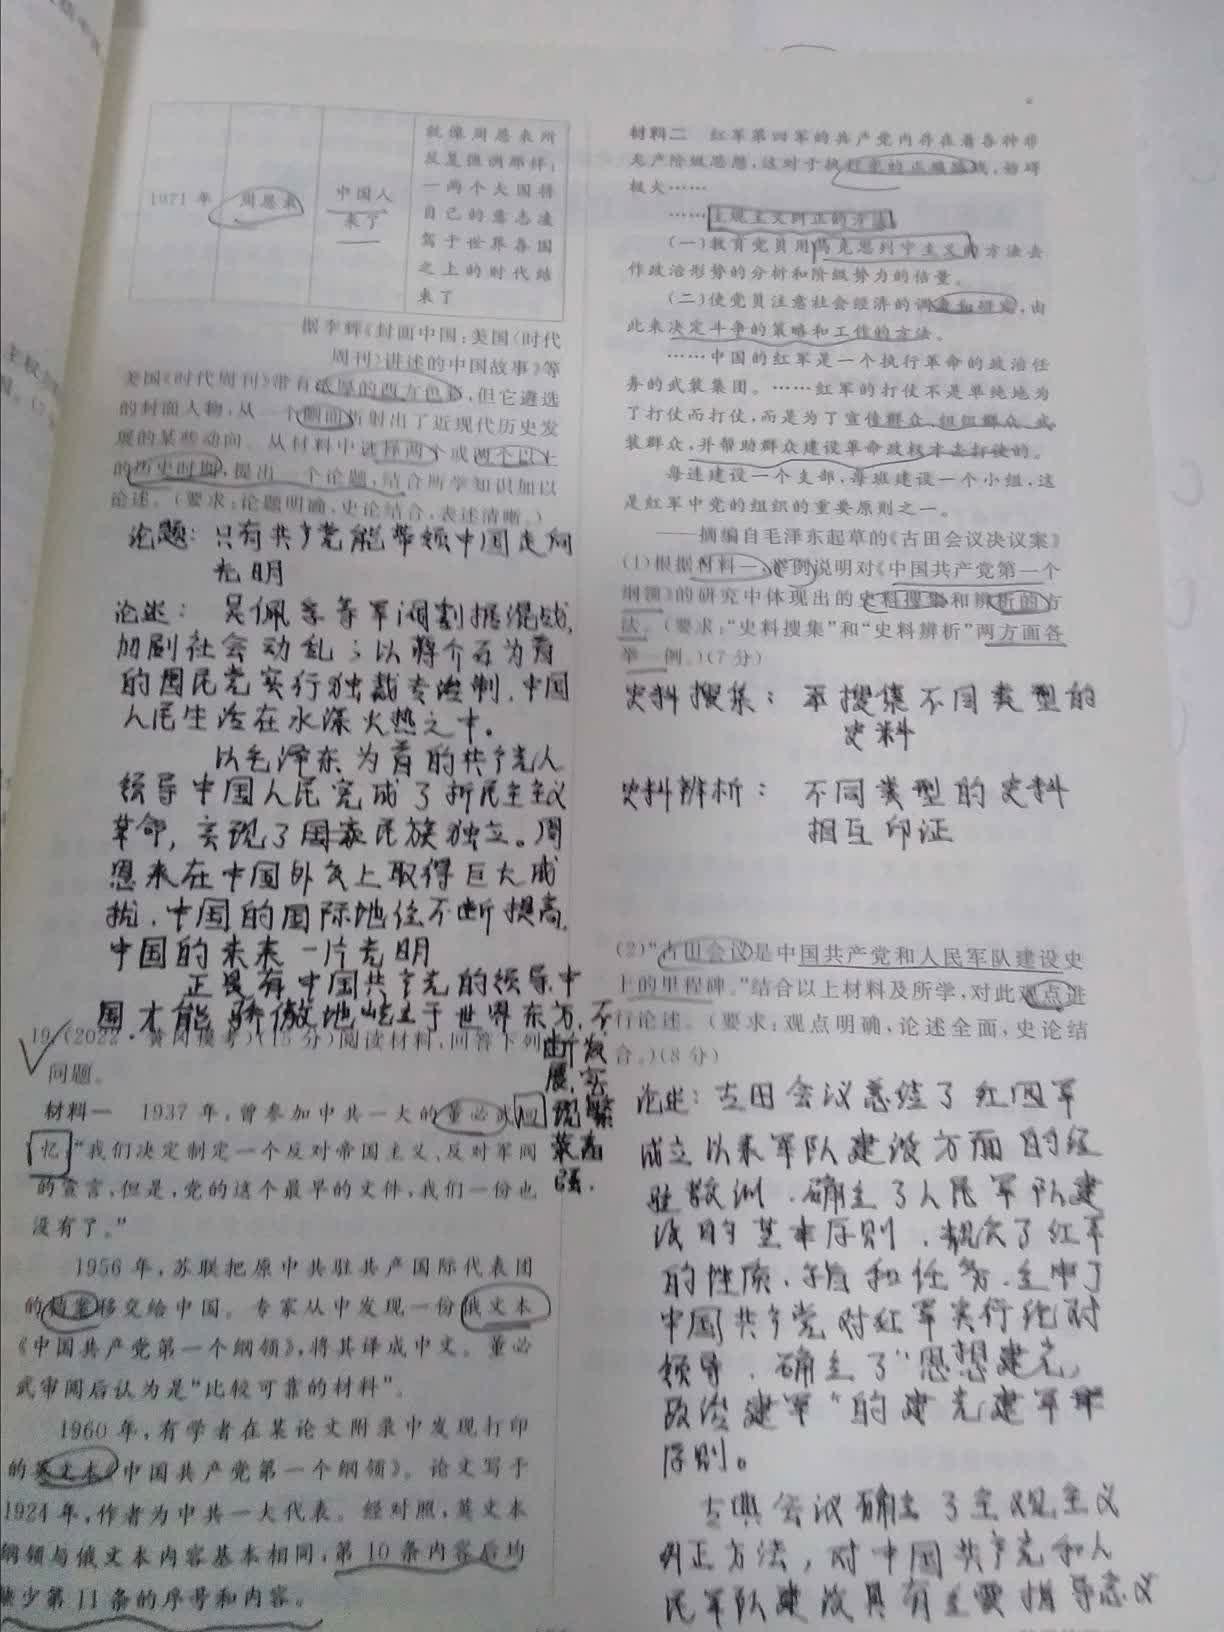 1971年
周恩来
中国人
来了
就像周恩来所
反复强调那样:
一两个大国将
自己的意志凌
驾于世界各国
之上的时代结
束了
据李辉《封面中国:美国〈时代
周刊〉讲述的中国故事》等
美国《时代周刊》带有浓厚的西方色彩,但它遴选
的封面人物,从一个侧面折射出了近现代历史发
展的某些动向。从材料中选择两个或两个以上
的历史时期,提出一个论题,结合所学知识加以
论述。(要求:论题明确,史论结合,表述清晰。)
论题: 只有共产党能带领中国走向
光明
论述: 吴佩孚等军阀割据混战,
加剧社会动乱;以蒋介石为首
的国民党实行独裁专治制,中国
人民生活在水深火热之中。
以毛泽东为首的共产党人
领导中国人民完成了新民主主义
革命,实现了国家民族独立。周
恩来在中国外交上取得巨大成
就,中国的国际地位不断提高,
中国的未来一片光明
正是有中国共产党的领导,中
国才能骄傲地屹立于世界东方,不
断发
展,实
现繁
荣富
强.
19.(2022·黄冈模考)(15分)阅读材料,回答下列
问题。
材料一 1937年,曾参加中共一大的董必武回
忆:“我们决定制定一个反对帝国主义、反对军阀
的宣言,但是,党的这个最早的文件,我们一份也
没有了。”
1956年,苏联把原中共驻共产国际代表团
的档案移交给中国。专家从中发现一份俄文本
《中国共产党第一个纲领》,将其译成中文。董必
武审阅后认为是“比较可靠的材料”。
1960年,有学者在某论文附录中发现打印
的英文本《中国共产党第一个纲领》。论文写于
1924年,作者为中共一大代表。经对照,英文本
纲领与俄文本内容基本相同,第10条内容后均
缺少第11条的序号和内容。
材料二 红军第四军的共产党内存在着各种非
无产阶级思想,这对于执行党的正确路线,妨碍
极大……
……主观主义纠正的方法:
(一)教育党员用马克思列宁主义的方法去
作政治形势的分析和阶级势力的估量。
(二)使党员注意社会经济的调查和研究,由
此来决定斗争的策略和工作的方法。
……中国的红军是一个执行革命的政治任
务的武装集团。……红军的打仗不是单纯地为
了打仗而打仗,而是为了宣传群众、组织群众、武
装群众,并帮助群众建设革命政权才去打仗的。
每连建设一个支部,每班建设一个小组,这
是红军中党的组织的重要原则之一。
——摘编自毛泽东起草的《古田会议决议案》
(1)根据材料一,举例说明对《中国共产党第一个
纲领》的研究中体现出的史料搜集和辨析的方
法。(要求:“史料搜集”和“史料辨析”两方面各
举一例。)(7分)
史料搜集: 搜集不同类型的
史料
史料辨析: 不同类型的史料
相互印证
(2)“古田会议是中国共产党和人民军队建设史
上的里程碑。”结合以上材料及所学,对此观点进
行论述。(要求:观点明确,论述全面,史论结
合。)(8分)
论述: 古田会议总结了红四军
成立以来军队建设方面的经
验教训,确立了人民军队建
设的基本原则,规定了红军
的性质、宗旨和任务,重申了
中国共产党对红军实行绝对
领导,确立了“思想建党,
政治建军”的建党建军
原则。
古典会议确立了主观主义
纠正方法,对中国共产党和人
民军队建设具有重要指导意义